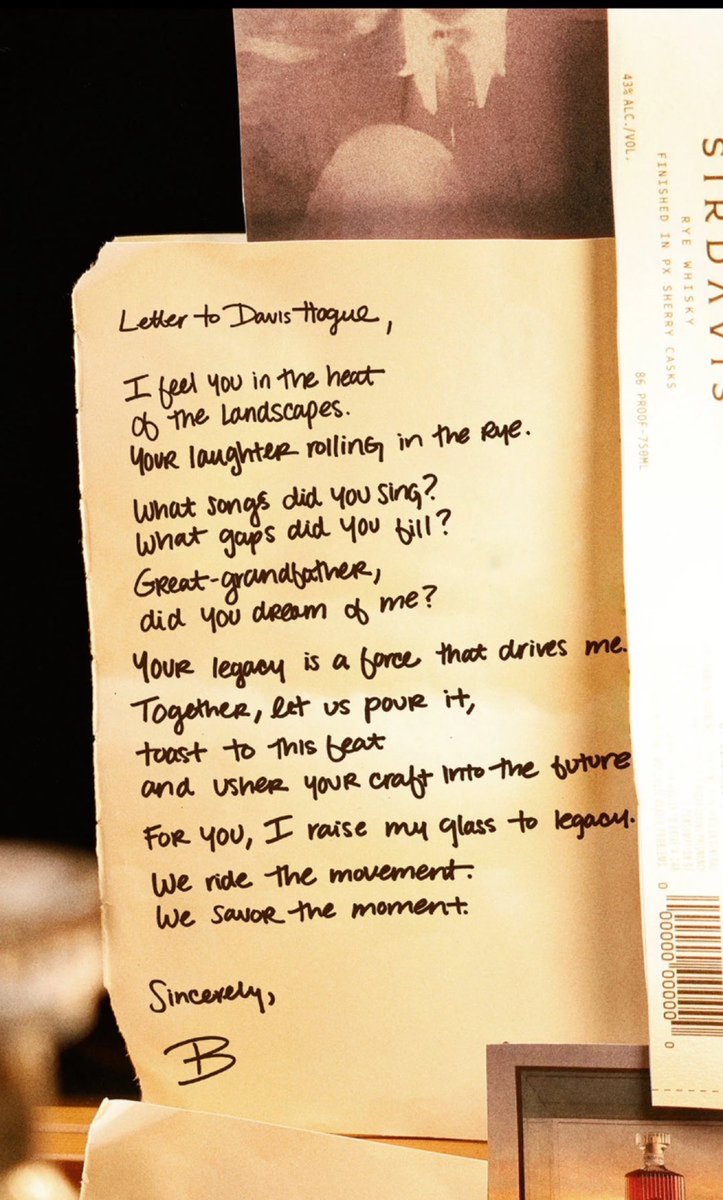 Letter to Davis Hogue,
I feel you in the heat
of the landscapes.
Your laughter rolling in the rye.
What songs did you sing?
What gaps did you fill?
Great-grandfather,
did you dream of me?
Your legacy is a force that drives me.
Together, let us pour it,
toast to this feat
and usher your craft into the future
For you, I raise my glass to legacy.
We ride the movement.
We savor the moment.
Sincerely,
B
SIRDAVIS
RYE WHISKY
FINISHED IN PX SHERRY CASKS
43% ALC./VOL.
86 PROOF-750ML
0 00000 00000 0